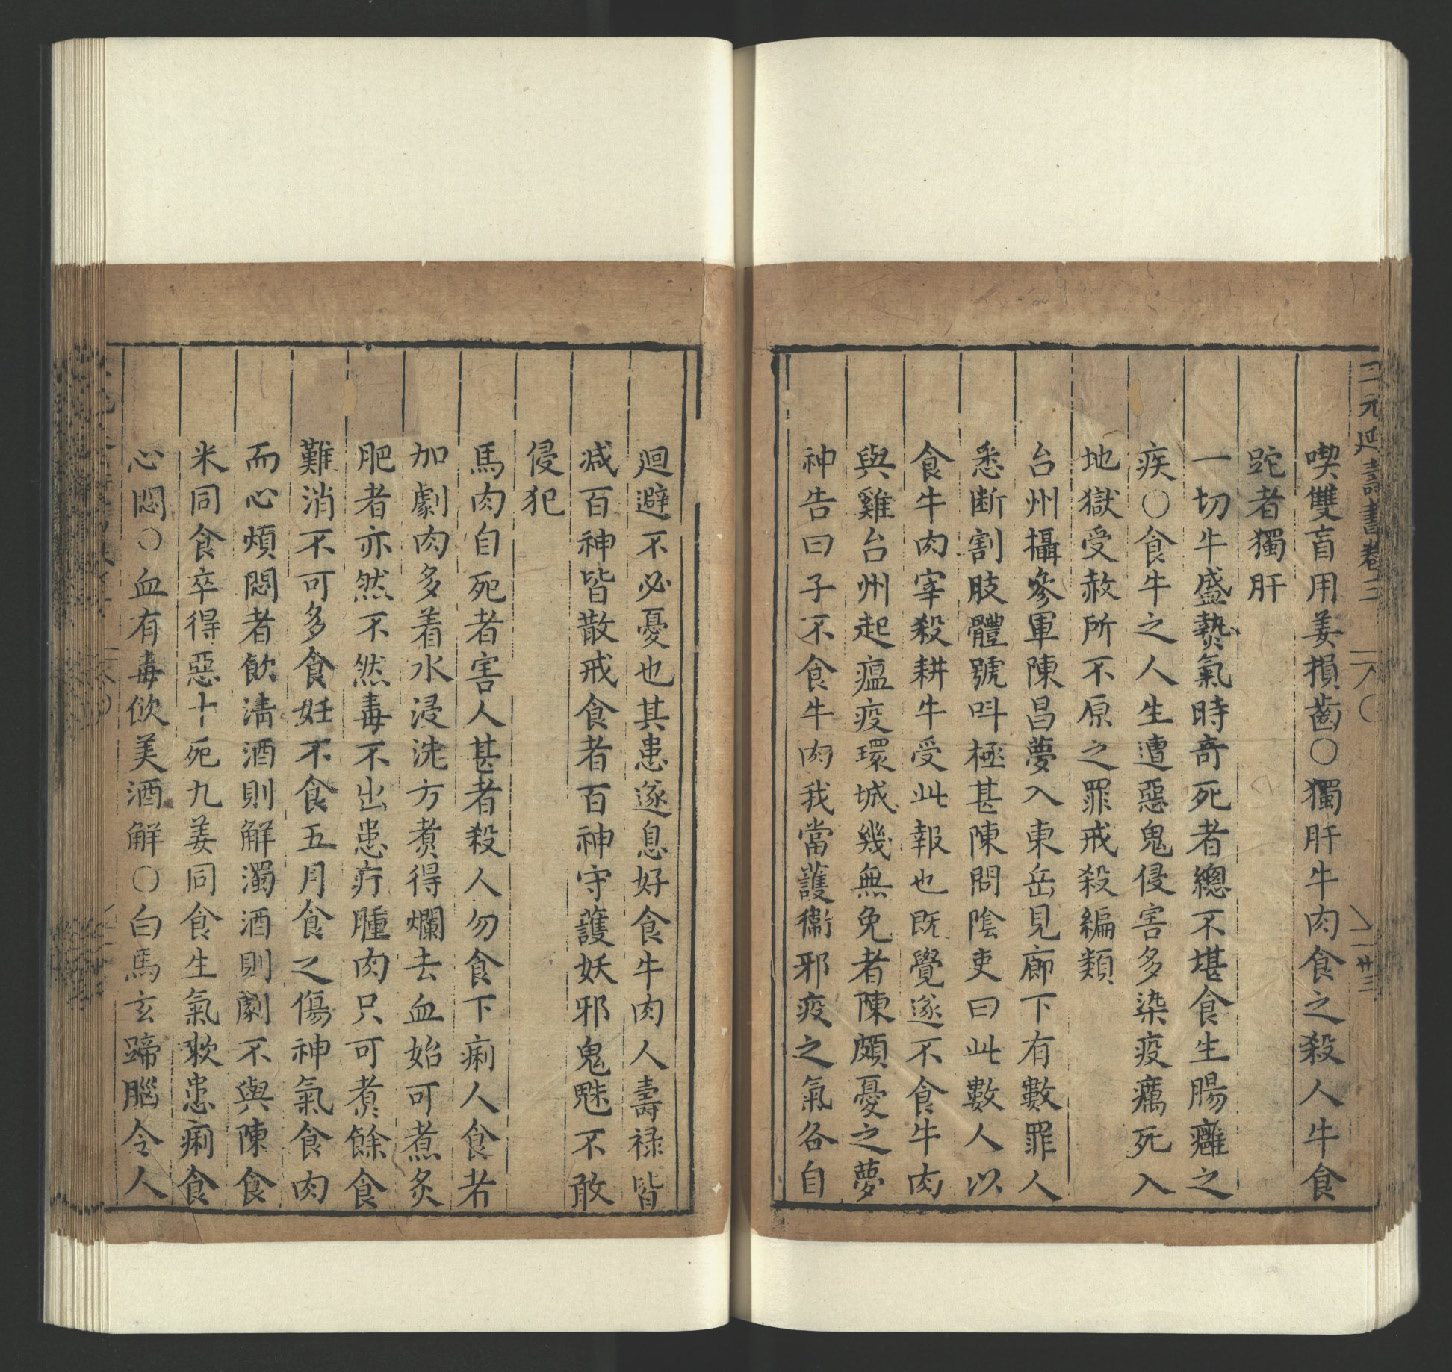 三元延壽書卷二
廿三
喫雙盲用姜損齒○獨肝牛肉食之殺人牛食
蛇者獨肝
一切牛盛熱氣時奇死者總不堪食生腸癰之
疾○食牛之人生遭惡鬼侵害多染疫癘死入
地獄受赦所不原之罪戒殺編類
台州攝參軍陳昌夢入東岳見廊下有數罪人
悉断割肢體號呌極甚陳問陰吏曰此數人以
食牛肉宰殺耕牛受此報也既覺遂不食牛肉
與雞台州起瘟疫環城幾無免者陳頗憂之夢
神告曰子不食牛肉我當護衞邪疫之氣各自
迴避不必憂也其患遂息好食牛肉人壽禄皆
減百神皆散戒食者百神守護妖邪鬼魅不敢
侵犯
馬肉自死者害人甚者殺人勿食下痢人食者
加劇肉多着水浸洗方煑得爛去血始可煮炙
肥者亦然不然毒不出患疔腫肉只可煑餘食
難消不可多食妊不食五月食之傷神氣食肉
而心煩悶者飲清酒則解濁酒則劇不與陳食
米同食卒得惡十死九姜同食生氣欬患痢食
心悶○血有毒飲美酒解○白馬玄蹄腦令人